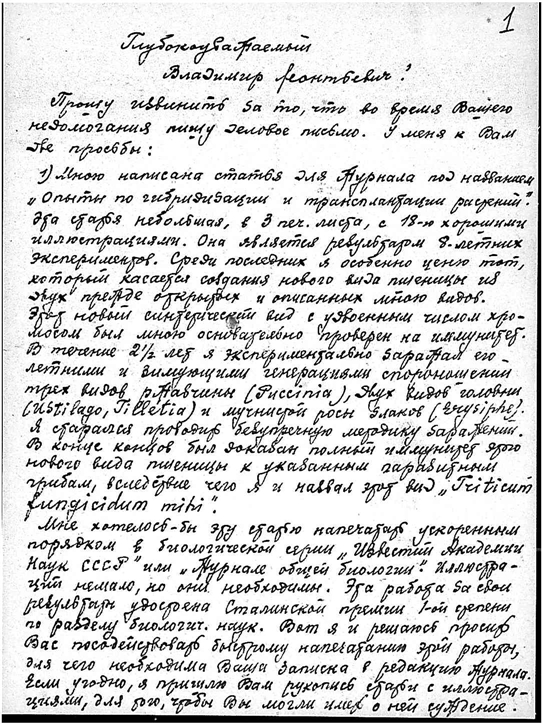 1
Глубокоуважаемый
Владимир Леонтьевич!
Прошу извинить за то, что во время Вашего
недомогания пишу деловое письмо. У меня к Вам
две просьбы:
1) Мною написана статья для Журнала под названием
„Опыты по гибридизации и трансплантации растений".
Эта статья небольшая, в 3 печ. листа, с 18-ю хорошими
иллюстрациями. Она является результатом 8-летних
экспериментов. Среди последних я особенно ценю тот,
который касается создания нового вида пшеницы из
двух прежде открытых и описанных мною видов.
Этот новый синтетический вид с удвоенным числом хро-
мосом был мною основательно проверен на иммунитет.
В течение 2½ лет я экспериментально заражал его
летними и зимующими генерациями спороношений
трех видов ржавчины (Puccinia), двух видов головни
(Ustilago, Tilletia) и мучнистой росы злаков (Erysiphe).
Я старался проводить безупречную методику заражений.
В конце концов был доказан полный иммунитет этого
нового вида пшеницы к указанным паразитным
грибам, вследствие чего я и назвал этот вид „Triticum
fungicidum mihi".
Мне хотелось-бы эту статью напечатать ускоренным
порядком в биологической серии „Известий Академии
Наук СССР" или „Журнале общей биологии". Иллюстра-
ций немало, но они необходимы. Эта работа за свои
результаты удостоена Сталинской премии 1-ой степени
по разделу биологич. наук. Вот я и решаюсь просить
Вас посодействовать быстрому напечатанию этой работы,
для чего необходима Ваша записка в редакцию Журнала.
Если угодно, я пришлю Вам рукопись статьи с иллюстра-
циями, для того, чтобы Вы могли иметь о ней суждение.